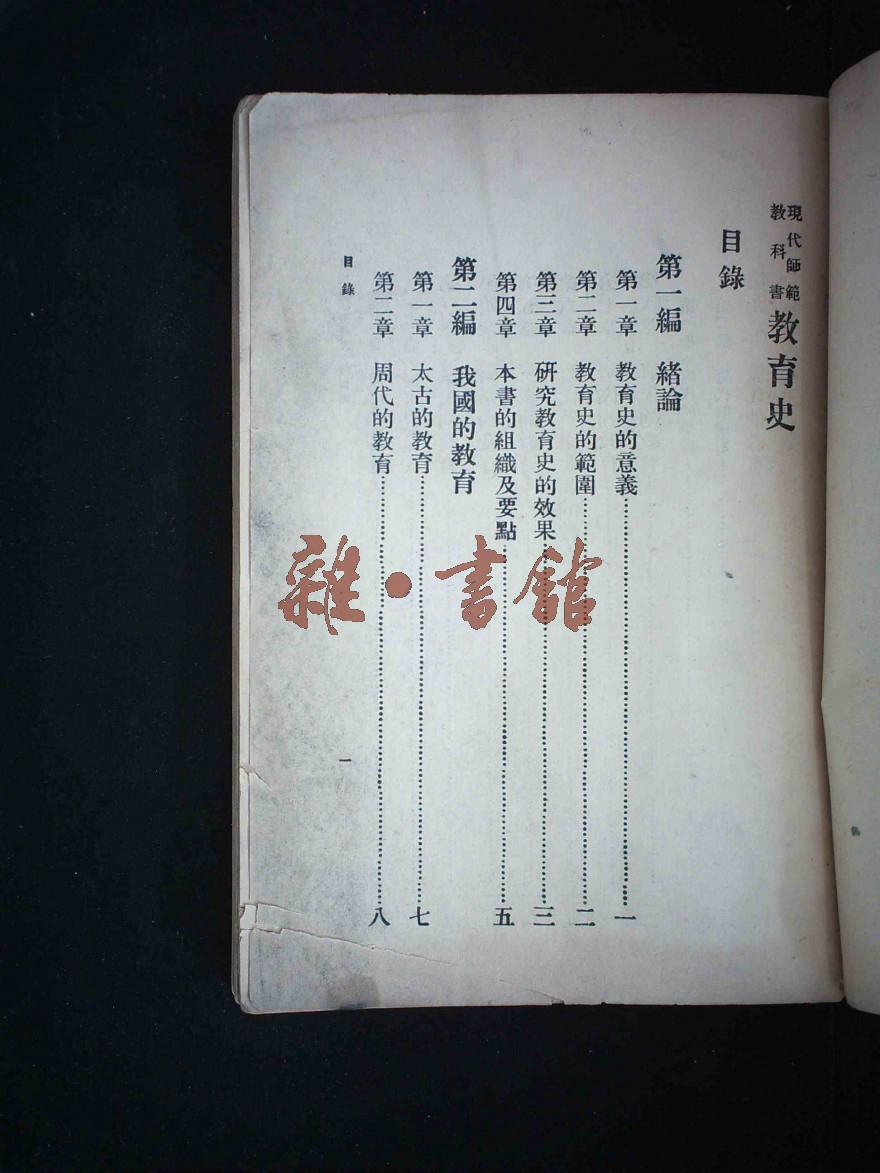 現代師範
教科書
教育史
目錄
第一編 緒論
第一章 教育史的意義……一
第二章 教育史的範圍……二
第三章 研究教育史的效果……三
第四章 本書的組織及要點……五
第二編 我國的教育
第一章 太古的教育……七
第二章 周代的教育……八
目錄 一
雜·書館